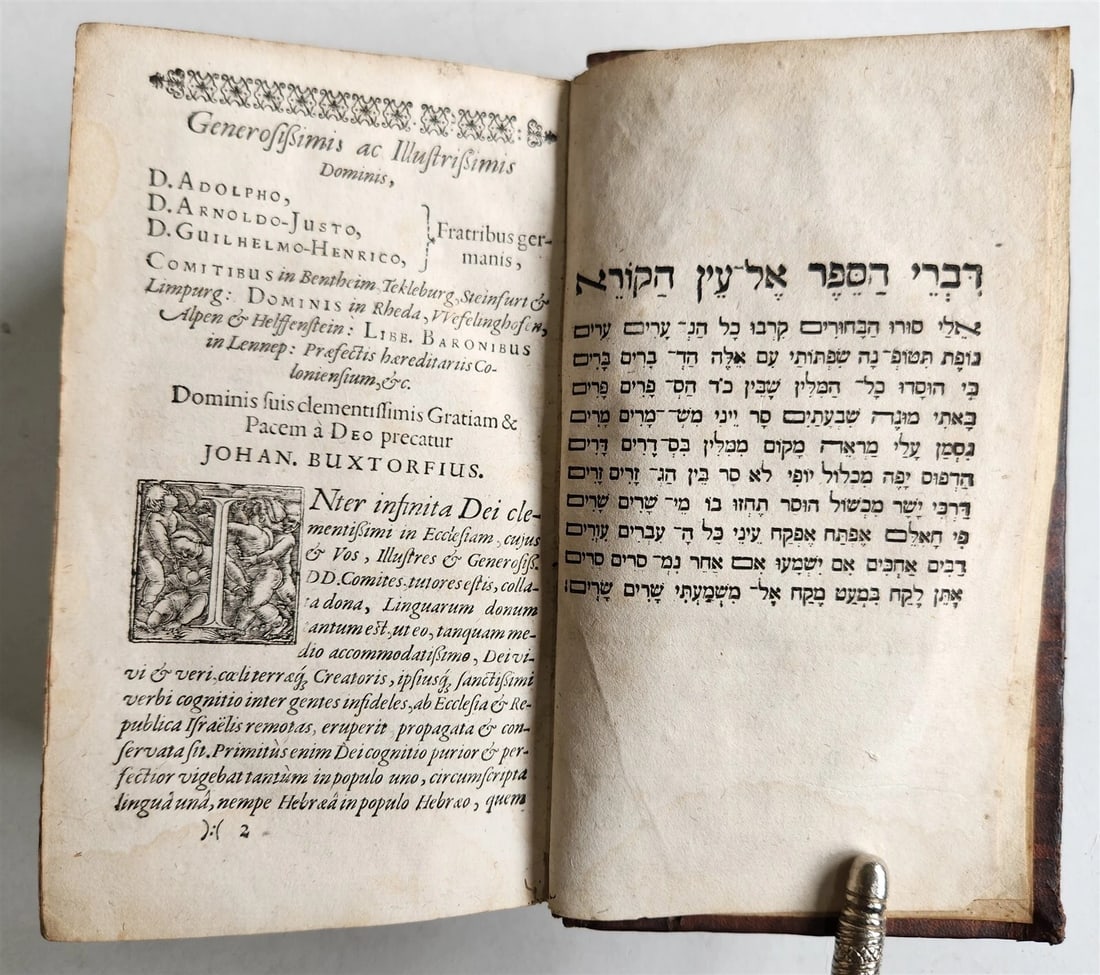 Generosißimis ac Illustrißimis
Dominis,
D. ADOLPHO,
D. ARNOLDO-JUSTO,
D. GUILHELMO-HENRICO,
Fratribus ger-
manis,
COMITIBUS in Bentheim, Tekleburg, Steinfurt &
Limpurg: DOMINIS in Rheda, VVefelinghofen,
Alpen & Helffenstein: LIBB. BARONIBUS
in Lennep: Præfectis hæreditariis Co-
loniensium, &c.
Dominis suis clementissimis Gratiam &
Pacem à DEO precatur
JOHAN. BUXTORFIUS.
INter infinita Dei cle-
mentißimi in Ecclesiam, cujus
& Vos, Illustres & Generosiss.
DD. Comites, tutores estis, colla-
ta dona, Linguarum donum
tantum est, ut eo, tanquam me-
dio accommodatißimo, Dei vi-
vi & veri, cœli terræq́; Creatoris, ipsiusq́; sanctißimi
verbi cognitio inter gentes infideles, ab Ecclesia & Re-
publica Israëlis remotas, eruperit, propagata & con-
servata sit. Primitùs enim Dei cognitio purior & per-
fectior vigebat tantùm in populo uno, circumscripta
linguâ unâ, nempe Hebræâ in populo Hebræo, quem
):( 2
דִּבְרֵי הַסֵּפֶר אֶל־עֵין הַקּוֹרֵא
אֵלַי סוּרוּ הַבַּחוּרִים קִרְבוּ כָּל הַנְּ־ עָרִים עֵרִים
נוֹפֶת תִּטּוֹפְ־נָה שִׂפְתוֹתַי עִם אֵלֶּה הַדְּ־ בָרִים בָּרִים
כִּי הוּסְדוּ כָל־ הַמִּלִּין שֶׁבֵּין כ"ד הַסְּ־ פָרִים פָּרִים
בָּאתִי מוּגָה שִׁבְעָתַיִם סָר יֵינִי מִשְּׁ־מָרִים מָרִים
נִסְמַן עָלַי מַרְאֵה מָקוֹם מִמִּלִּין בִּסְ־דָרִים דָּרִים
הַדְּפוּס יָפֶה מִכְלוֹל יוֹפִי לֹא סָר בֵּין הַגְּ־ זָרִים זָרִים
דַּרְכִּי יָשָׁר מִכְשׁוֹל הוּסַר תֶּחֱזוּ בוֹ מֵי־ שָׁרִים שָׁרִים
פִּי אִלֵּם אֶפְתַּח אֶפְקַח עֵינֵי כָּל הָ־ עִבְרִים עִוְרִים
רַבִּים אַחְכִּים אִם יִשְׁמְעוּ אִם אַחַר נִמְ־ סָרִים סָרִים
אֶתֵּן לֶקַח בִּמְעַט מֶקַח אֶל־ מִשְׁמַעְתִּי שָׂרִים שָׂרִים: